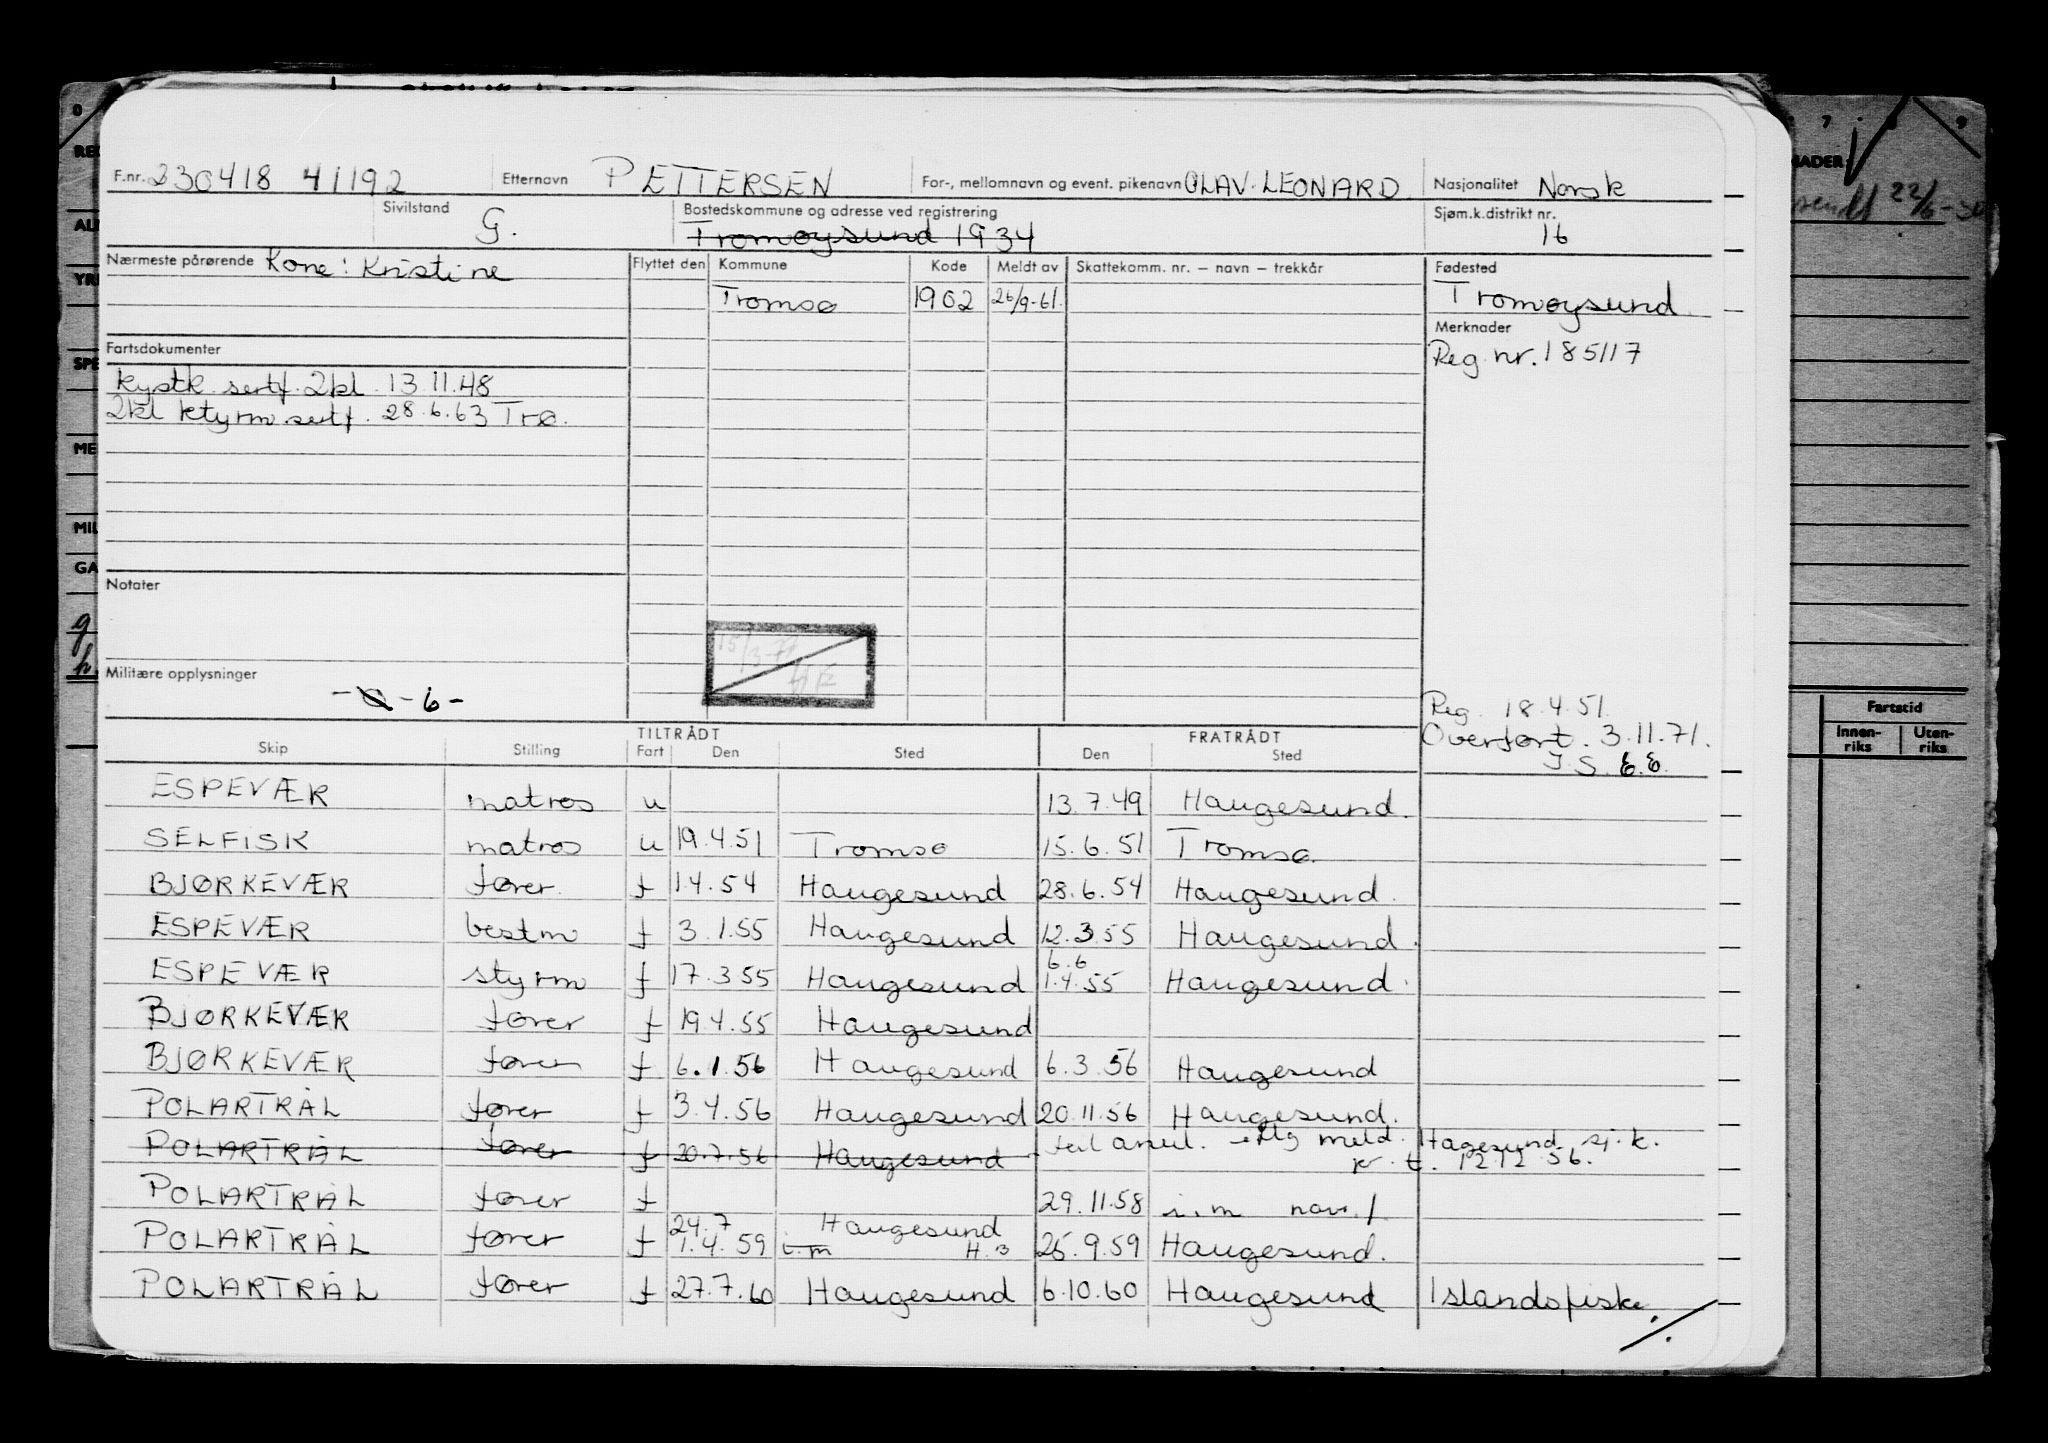 F.nr. 230418 41192 Etternavn PETTERSEN For-, mellomnavn og event. pikenavn OLAV LEONARD Nasjonalitet Norsk
Sivilstand G. Bostedskommune og adresse ved registrering Tromøysund 1934 Sjøm.k.distrikt nr. 16
Nærmeste pårørende Kone: Kristine Flyttet den Kommune Kode Meldt av Skattekomm. nr. – navn – trekkår Fødested
Tromsø 1902 26/9-61. Tromøysund
Merknader
Reg. nr. 185117
Fartsdokumenter
kystk. sertf. 2kl. 13.11.48
2kl ktyrm sertf. 28.6.63 Trø.
Notater
15/3-71
Militære opplysninger
- 6 -
Reg. 18.4.51.
Overført. 3.11.71.
J.S. E.E.
TILTRÅDT FRATRÅDT
Skip Stilling Fart Den Sted Den Sted
ESPEVÆR matros u 13.7.49 Haugesund.
SELFISK matros u 19.4.51 Tromsø 15.6.51 Tromsø
BJØRKEVÆR fører f 1.4.54 Haugesund 28.6.54 Haugesund.
ESPEVÆR bestm f 3.1.55 Haugesund 12.3.55 Haugesund.
6.6
ESPEVÆR styrm f 17.3.55 Haugesund 1.4.55 Haugesund.
BJØRKEVÆR fører f 19.4.55 Haugesund
BJØRKEVÆR fører f 6.1.56 Haugesund 6.3.56 Haugesund
POLARTRÅL fører f 3.4.56 Haugesund 20.11.56 Haugesund.
POLARTRÅL fører f 20.7.56 Haugesund feil anul. meld. Hagesund sj.k.
12.12.56.
POLARTRÅL fører f 29.11.58 i.m nov./
24.7 Haugesund
POLARTRÅL fører f 1.4.59 i.m H.3 25.9.59 Haugesund.
POLARTRÅL fører f 27.7.60 Haugesund 6.10.60 Haugesund Islandsfiske.
Fartstid
Innen-riks Uten-riks